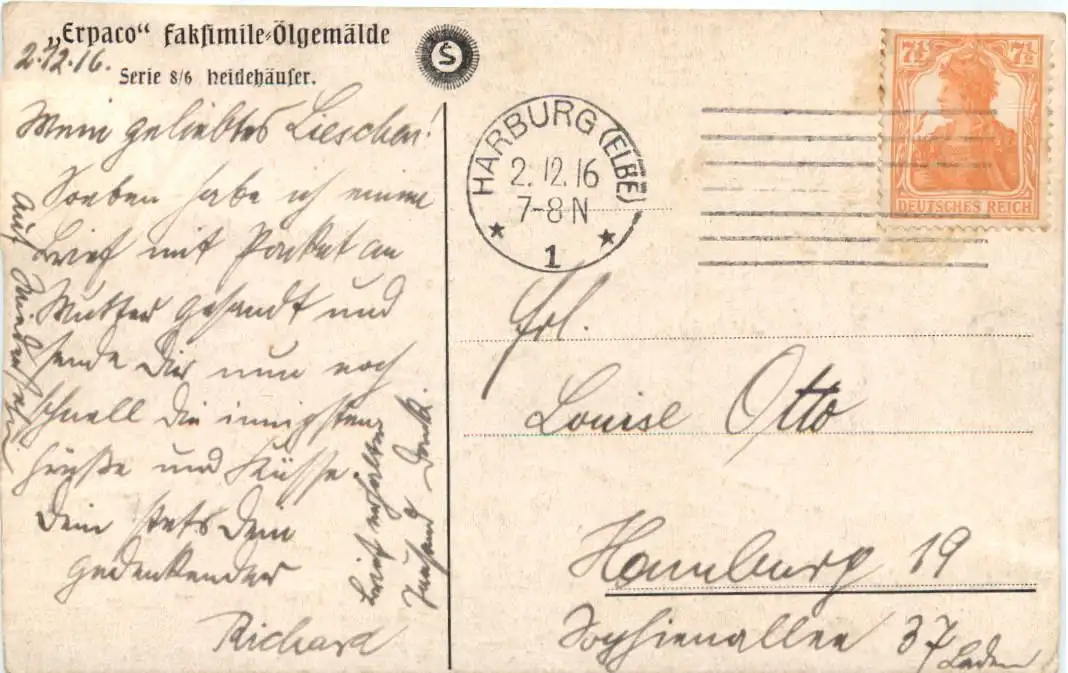 „Erpaco“ Faksimile-Ölgemälde
2.12.16.
Serie 8/6 Heidehäuser.
S
Mein geliebtes Lieschen!
Soeben habe ich einen
Brief mit Packet an
Mutter gesandt und
sende Dir nun noch
schnell die innigsten
Grüße und Küsse
Dein stets Dein
gedenkender
Richard
Auf Wiedersehn
Brief erhalten
Tausend Dank.
HARBURG (ELBE)
2.12.16
7-8 N
* 1 *
7½ 7½
DEUTSCHES REICH
Frl.
Louise Otto
Hamburg 19
Sophienallee 37
Laden